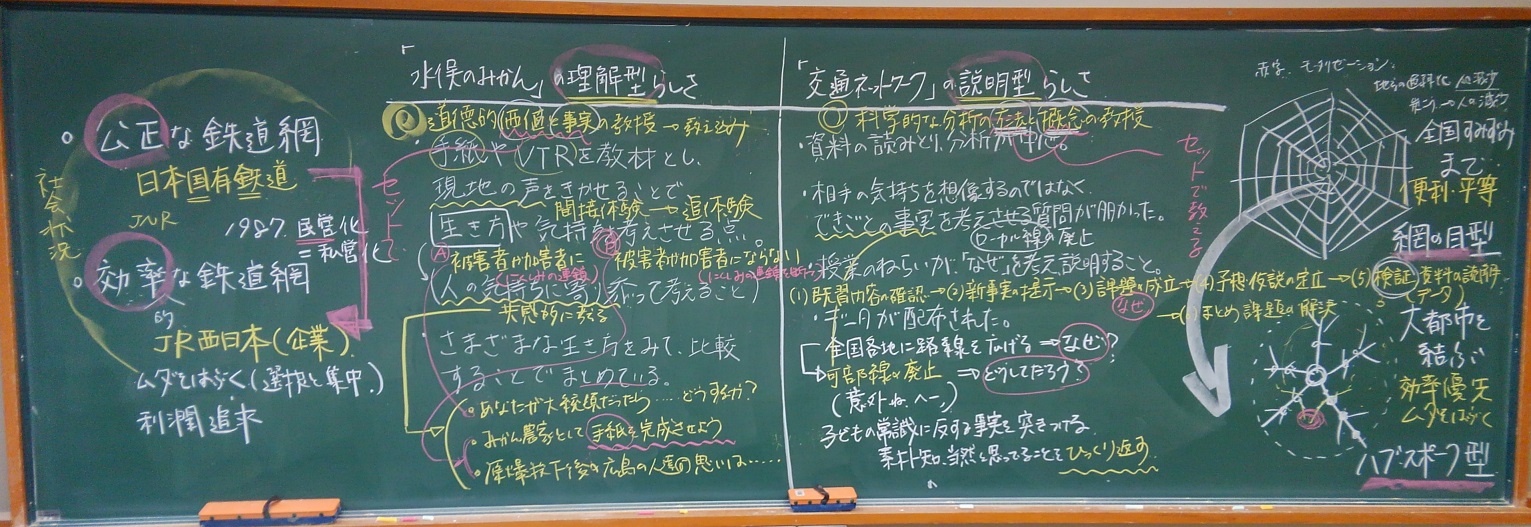 社会状況
。公正な鉄道網
日本国有鉄道
JNR
1987. 民営化
=私営化
。効率的な鉄道網
JR西日本(企業)
ムダをはぶく(選択と集中)
利潤追求
セットで
「水俣のみかん」の理解型らしさ
◎道徳的価値と事実の教授→教え込み
・手紙やVTRを教材とし、
現地の声をきかせることで
間接体験→追体験
生き方や気持を考えさせる点。
Ⓐ被害者や加害者に Ⓑ被害者や加害者にならない
(にくしみの連鎖)
(人の気持ちに寄り添って考えること)
共感的に考える
・さまざまな生き方をみて、比較
することでまとめている。
。あなたが大統領だったら……どうするか?
。みかん農家として手紙を完成させよう
。原爆投下後の広島の人達の思いは……
「交通ネットワーク」の説明型らしさ
◎科学的な分析の方法と概念の教授
・資料の読みとり、分析が中心。
・相手の気持ちを想像するのではなく、
できごとの事実を考えさせる質問が多かった。
ローカル線の廃止
・授業のねらいが、「なぜ」を考え説明すること。
(1)既習内容の確認→(2)新事実の提示→(3)課題の成立→(4)予想・仮説の定立→(5)検証(資料の読解)
なぜ
(データ)
→(6)まとめ 課題の解決
・データが配布された。
全国各地に路線を広げる⇒なぜ?
可部線の廃止⇒どうしてだろう?
(意外ね、へー。)
子どもの常識に反する事実を突きつける
素朴知、当然と思ってることをひっくり返す
セットで教える
赤字、モータリゼーション、
地方の過疎化
全国すみずみ
まで…
便利・平等
網の目型
大都市を
結ぶ
効率優先
ムダをはぶく
ハブスポーク型